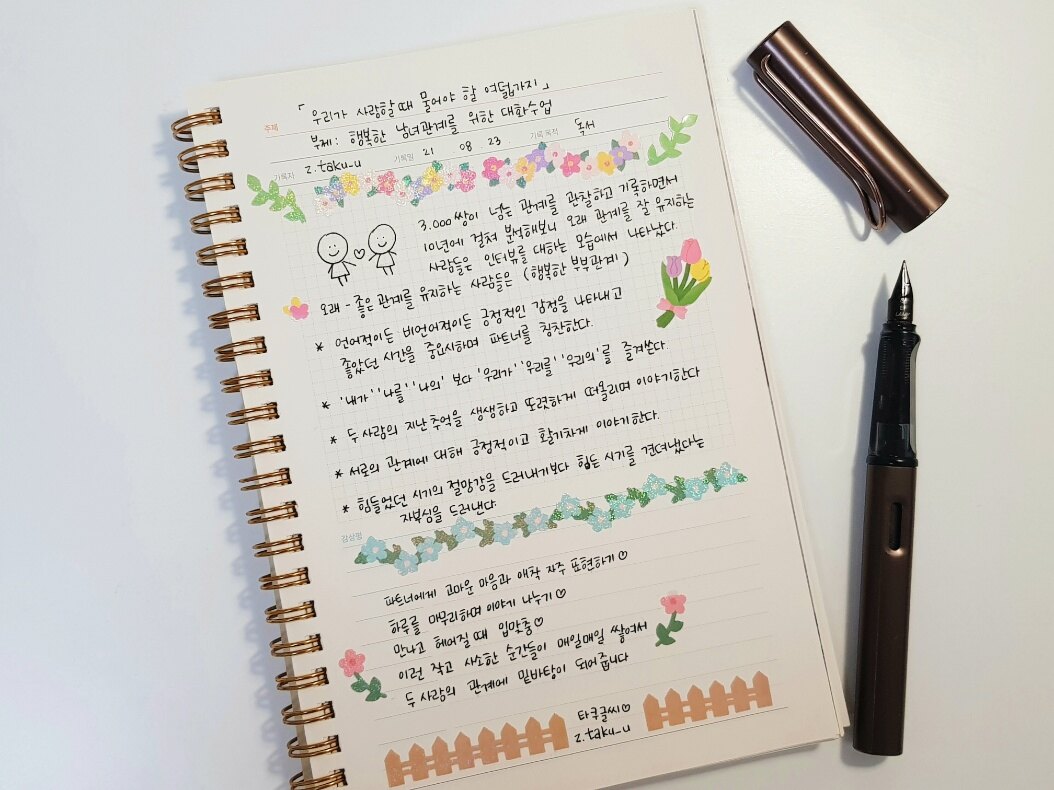 「우리가 사랑할 때 물어야 할 여덟가지」
주제
부제: 행복한 남녀관계를 위한 대화수업
기록자 z.taku_u 기록일 21 08 23 기록 목적 독서
3.000쌍이 넘는 관계를 관찰하고 기록하면서
10년에 걸쳐 분석해보니 오래 관계를 잘 유지하는
사람들은 인터뷰를 대하는 모습에서 나타났다.
오래 - 좋은 관계를 유지하는 사람들은 (행복한 부부관계)
* 언어적이든 비언어적이든 긍정적인 감정을 나타내고
좋았던 시간을 중요시하며 파트너를 칭찬한다.
* '내가' '나를' '나의' 보다 '우리가' '우리를' '우리의'를 즐겨쓴다.
* 두 사람의 지난 추억을 생생하고 또렷하게 떠올리며 이야기한다
* 서로의 관계에 대해 긍정적이고 활기차게 이야기한다.
* 힘들었던 시기의 절망감을 드러내기보다 힘든 시기를 견뎌냈다는
자부심을 드러낸다.
감상평
파트너에게 고마운 마음과 애착 자주 표현하기♡
하루를 마무리하며 이야기 나누기♡
만나고 헤어질 때 입맞춤♡
이런 작고 사소한 순간들이 매일매일 쌓여서
두 사람의 관계에 밑바탕이 되어줍니다
타쿠글씨♡
z.taku_u